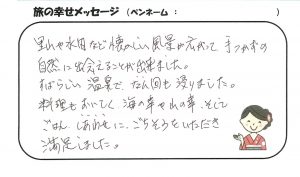 旅の幸せメッセージ (ペンネーム: )
里山や水田など懐かしい風景が広がって手つかずの
自然に出会えることが出来ました。
すばらしい温泉で、なん回も浸りました。
料理もおいしく海の幸や山の幸、そして
ごはん しあわせに、ごちそうをいただき
満足しました。